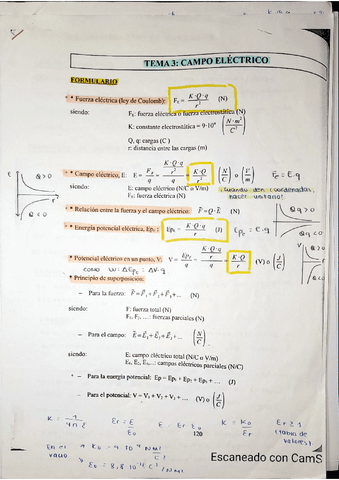 TEMA 3: CAMPO ELÉCTRICO
FORMULARIO
* Fuerza eléctrica (ley de Coulomb): Fₑ = K·Q·q / r² (N)
siendo: Fₑ: fuerza eléctrica o fuerza electrostática (N)
K: constante electrostática = 9·10⁹ (N·m² / C²)
Q, q: cargas (C)
r: distancia entre las cargas (m)
* Campo eléctrico, E: E = Fₑ / q = (K·Q·q / r²) / q = K·Q / r² (N / C) o (V / m)
siendo: E: campo eléctrico (N/C o V/m)
Q>0
Q<0
* Relación entre la fuerza y el campo eléctrico: F = Q·E (N)
* Energía potencial eléctrica, Epₑ: Epₑ = K·Q·q / r (J)
Qq>0
Qq<0
* Potencial eléctrico en un punto, V: V = Epₑ / q = (K·Q·q / r) / q = K·Q / r (V) o (J / C)
* Principio de superposición:
– Para la fuerza: F = F₁ + F₂ + F₃ + ... (N)
siendo: F: fuerza total (N)
F₁, F₂, ...: fuerzas parciales (N)
– Para el campo: E = E₁ + E₂ + E₃ + ... (N / C)
siendo: E: campo eléctrico total (N/C o V/m)
E₁, E₂, E₃,...: campos eléctricos parciales (N/C)
– Para la energía potencial: Ep = Ep₁ + Ep₂ + Ep₃ + ... (J)
– Para el potencial: V = V₁ + V₂ + V₃ + ... (V) o (J / C)
120
Escaneado con CamS